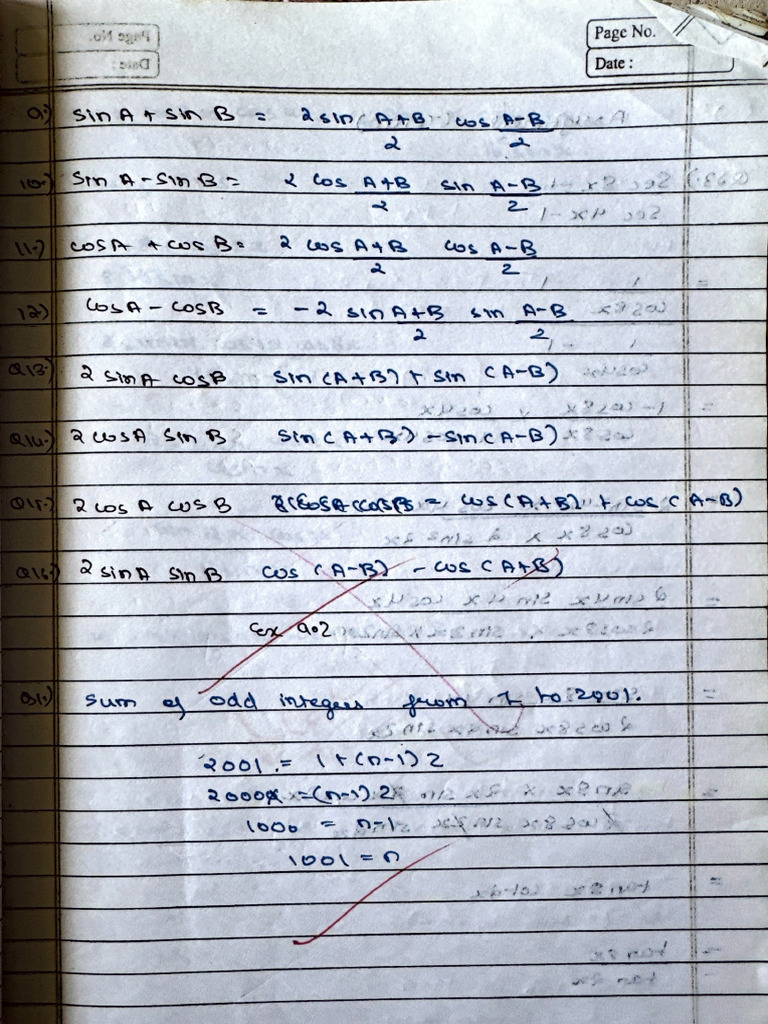 Page No.
Date :
9.) sin A + sin B = 2 sin (A+B)/2 cos (A-B)/2
10.) Sin A - Sin B = 2 cos (A+B)/2 sin (A-B)/2
11.) cos A + cos B = 2 cos (A+B)/2 cos (A-B)/2
12) cos A - cos B = -2 sin (A+B)/2 sin (A-B)/2
Q13.) 2 sin A cos B sin (A+B) + sin (A-B)
Q14.) 2 cos A sin B sin (A+B) - sin (A-B)
Q15.) 2 cos A cos B = cos (A+B) + cos (A-B)
Q16.) 2 sin A sin B cos (A-B) - cos (A+B)
Ex 9.2
Q1.) sum of odd integers from 1 to 2001.
2001 = 1 + (n-1) 2
2000 = (n-1) 2
1000 = n-1
1001 = n